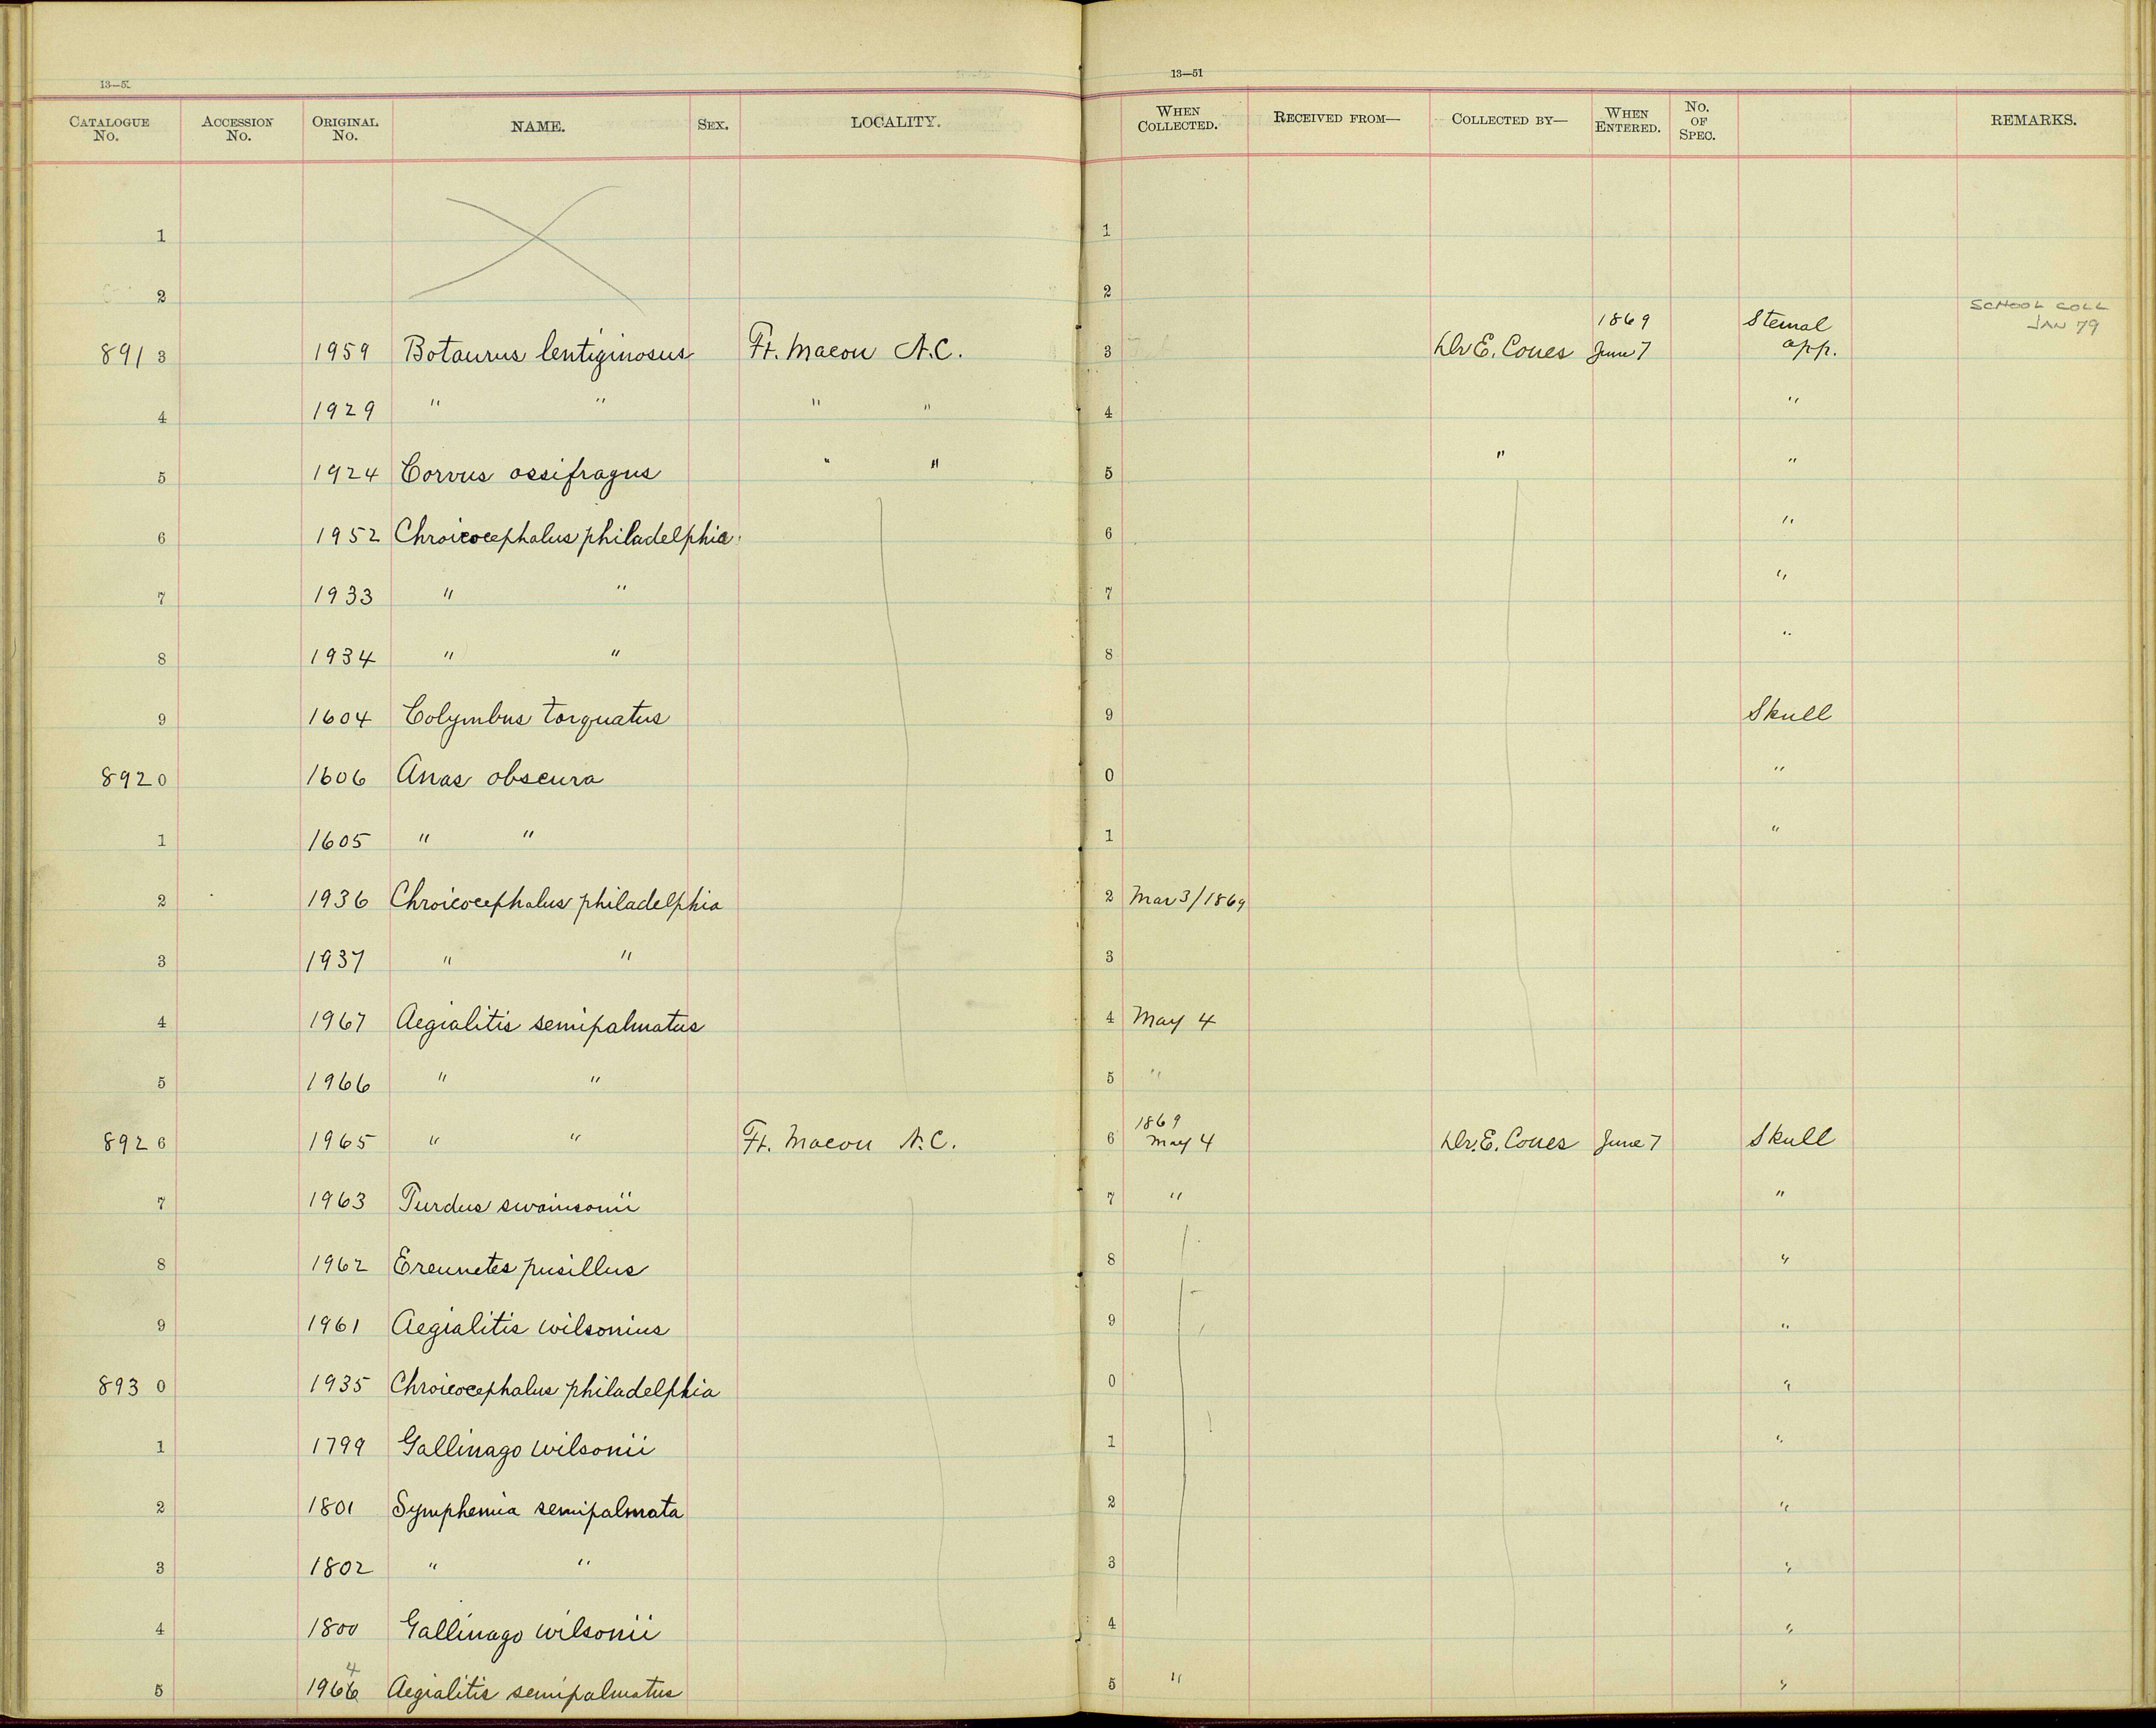 13—5
13—51
CATALOGUE No. ACCESSION No. ORIGINAL No. NAME. SEX. LOCALITY. WHEN COLLECTED. RECEIVED FROM— COLLECTED BY— WHEN ENTERED. No. OF SPEC. REMARKS.
1 1
2 2
SCHOOL COLL JAN 79
8913 1959 Botaurus lentiginosus Ft. Macon N.C. 3 Dr E. Coues 1869 June 7 Sternal app.
4 1929 " " " " 4 "
5 1924 Corvus ossifragus " " 5 " "
6 1952 Chroicocephalus philadelphia 6 "
7 1933 " " 7 "
8 1934 " " 8 "
9 1604 Colymbus torquatus 9 Skull
8920 1606 Anas obscura 0 "
1 1605 " " 1 "
2 1936 Chroicocephalus philadelphia 2 Mar 3/1869
3 1937 " " 3
4 1967 Aegialitis semipalmatus 4 May 4
5 1966 " " 5 "
8926 1965 " " Ft. Macon N.C. 6 1869 May 4 Dr. E. Coues June 7 Skull
7 1963 Turdus swainsonii 7 " "
8 1962 Ereunetes pusillus 8 "
9 1961 Aegialitis wilsonius 9 "
8930 1935 Chroicocephalus philadelphia 0 "
1 1799 Gallinago wilsonii 1 "
2 1801 Symphemia semipalmata 2 "
3 1802 " " 3 "
4 1800 Gallinago wilsonii 4 "
4
5 1966 Aegialitis semipalmatus 5 " "